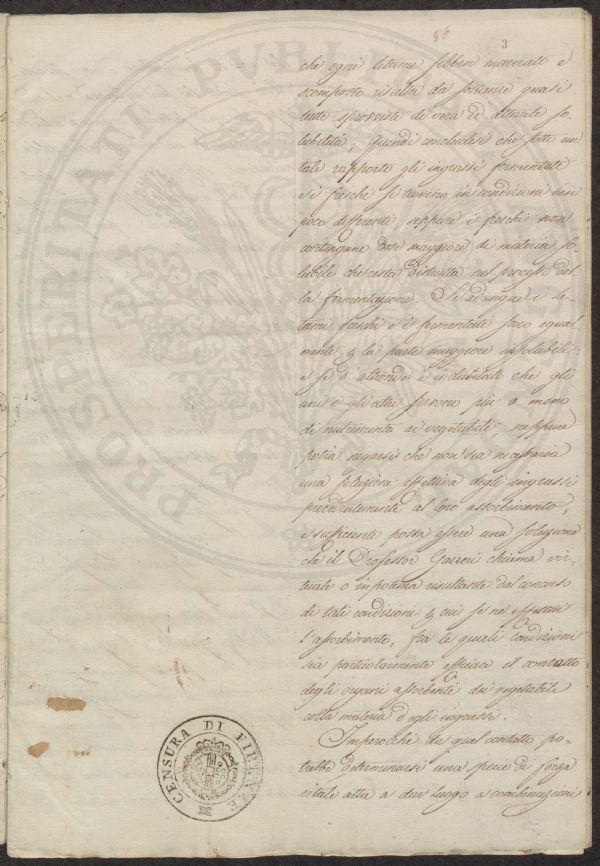 86
3
che ogni letame sebben macerato e
scomposto risulta da sostanze quasi
tutte sprovviste di vera ed attuale so-
lubilità, quindi concludesi che sotto un
tale rapporto gli ingrassi fermentati
ed i freschi si trovino in condizioni ben
poco differenti, seppure i freschi non
contengano dose maggiore di materia so-
lubile che resta distrutta nel processo del-
la fermentazione. Se adunque i le-
tami freschi ed i fermentati sono egual-
mente per la parte maggiore insolubili;
e se d'altronde è indubitato che gli
uni e gli altri servono più o meno
di nutrimento ai vegetabili neppure
potrà negarsi che non sia necessaria
una soluzione effettiva degli ingrassi
precedentemente al loro assorbimento,
e sufficiente possa essere una soluzione
che il Professor Gazzeri chiama vir-
tuale o in potenza risultante dal concorso
di tali condizioni per cui se ne effettui
l'assorbimento, fra le quali condizioni
sia particolarmente efficace il contatto
degli organi assorbenti dei vegetabili
colla materia degli ingrassi.
Imperocchè da qual contatto po-
trebbe determinarsi una specie di forza
vitale atta a dar luogo a combinazioni
CENSURA DI FIRENZE
PROSPERITATI PVBLICAE